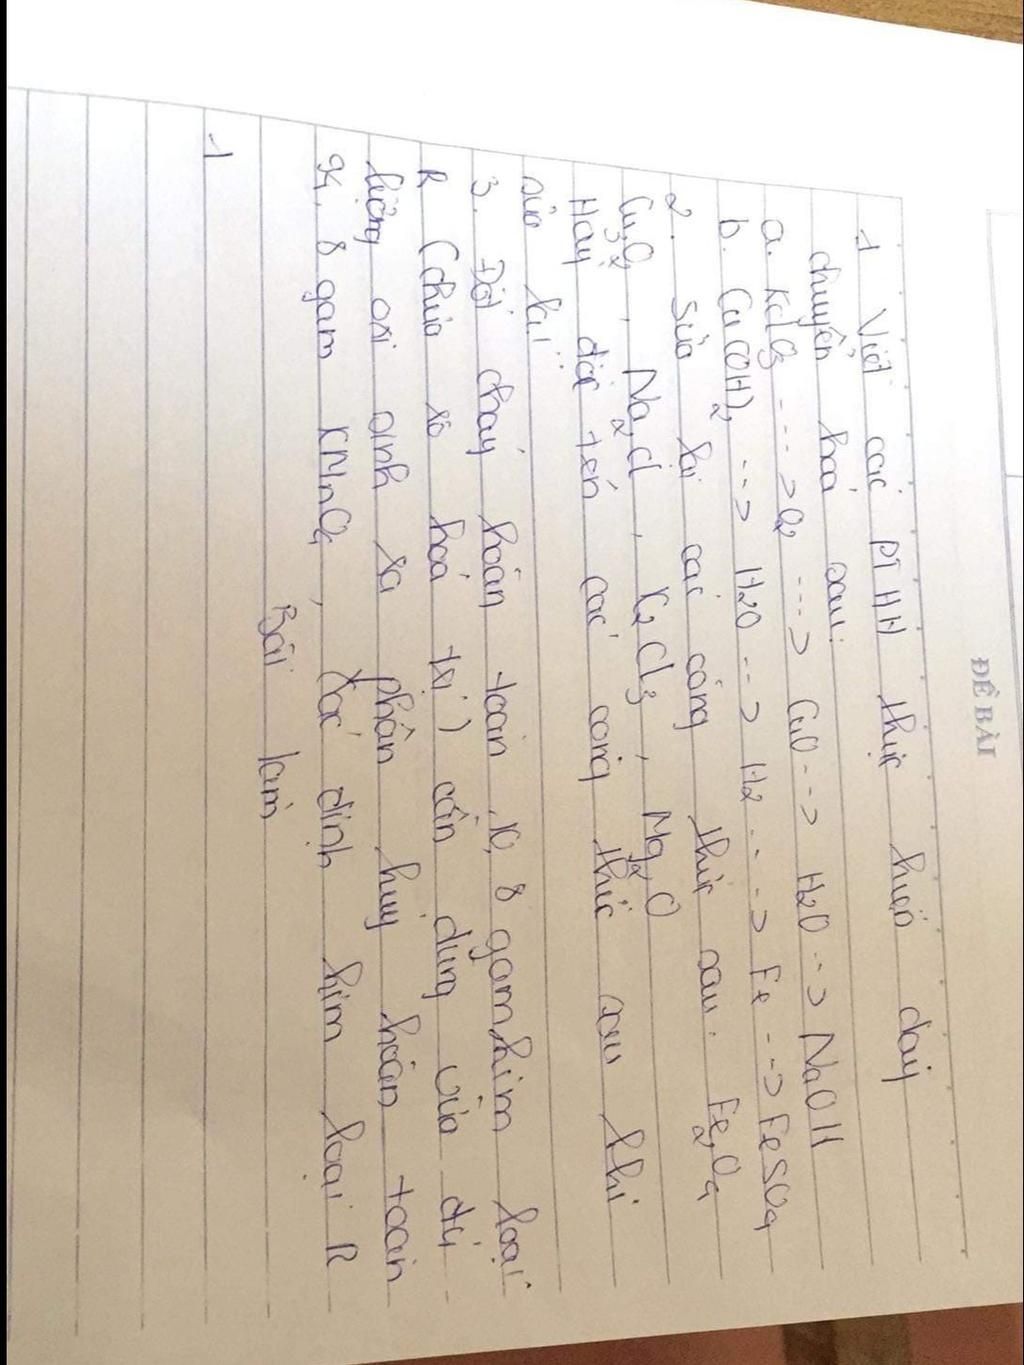 ĐỀ BÀI
1 Viết các PTHH thực hiện dãy
chuyển hoá sau:
a. KClO3 ---> O2 ---> CuO --> H2O --> NaOH
b. Cu(OH)2 --> H2O --> H2 ---> Fe --> FeSO4
2. Sửa lại các công thức sau: Fe2O4
Cu3O2, Na2Cl, K2Cl3, Mg2O
Hãy đọc tên các công thức sau khi
sửa lại
3. Đốt cháy hoàn toàn 10,8 gam kim loại
R (chưa rõ hoá trị) cần dùng vừa đủ
lượng oxi sinh ra phân huỷ hoàn toàn
94,8 gam KMnO4, Xác định kim loại R
Bài làm
1